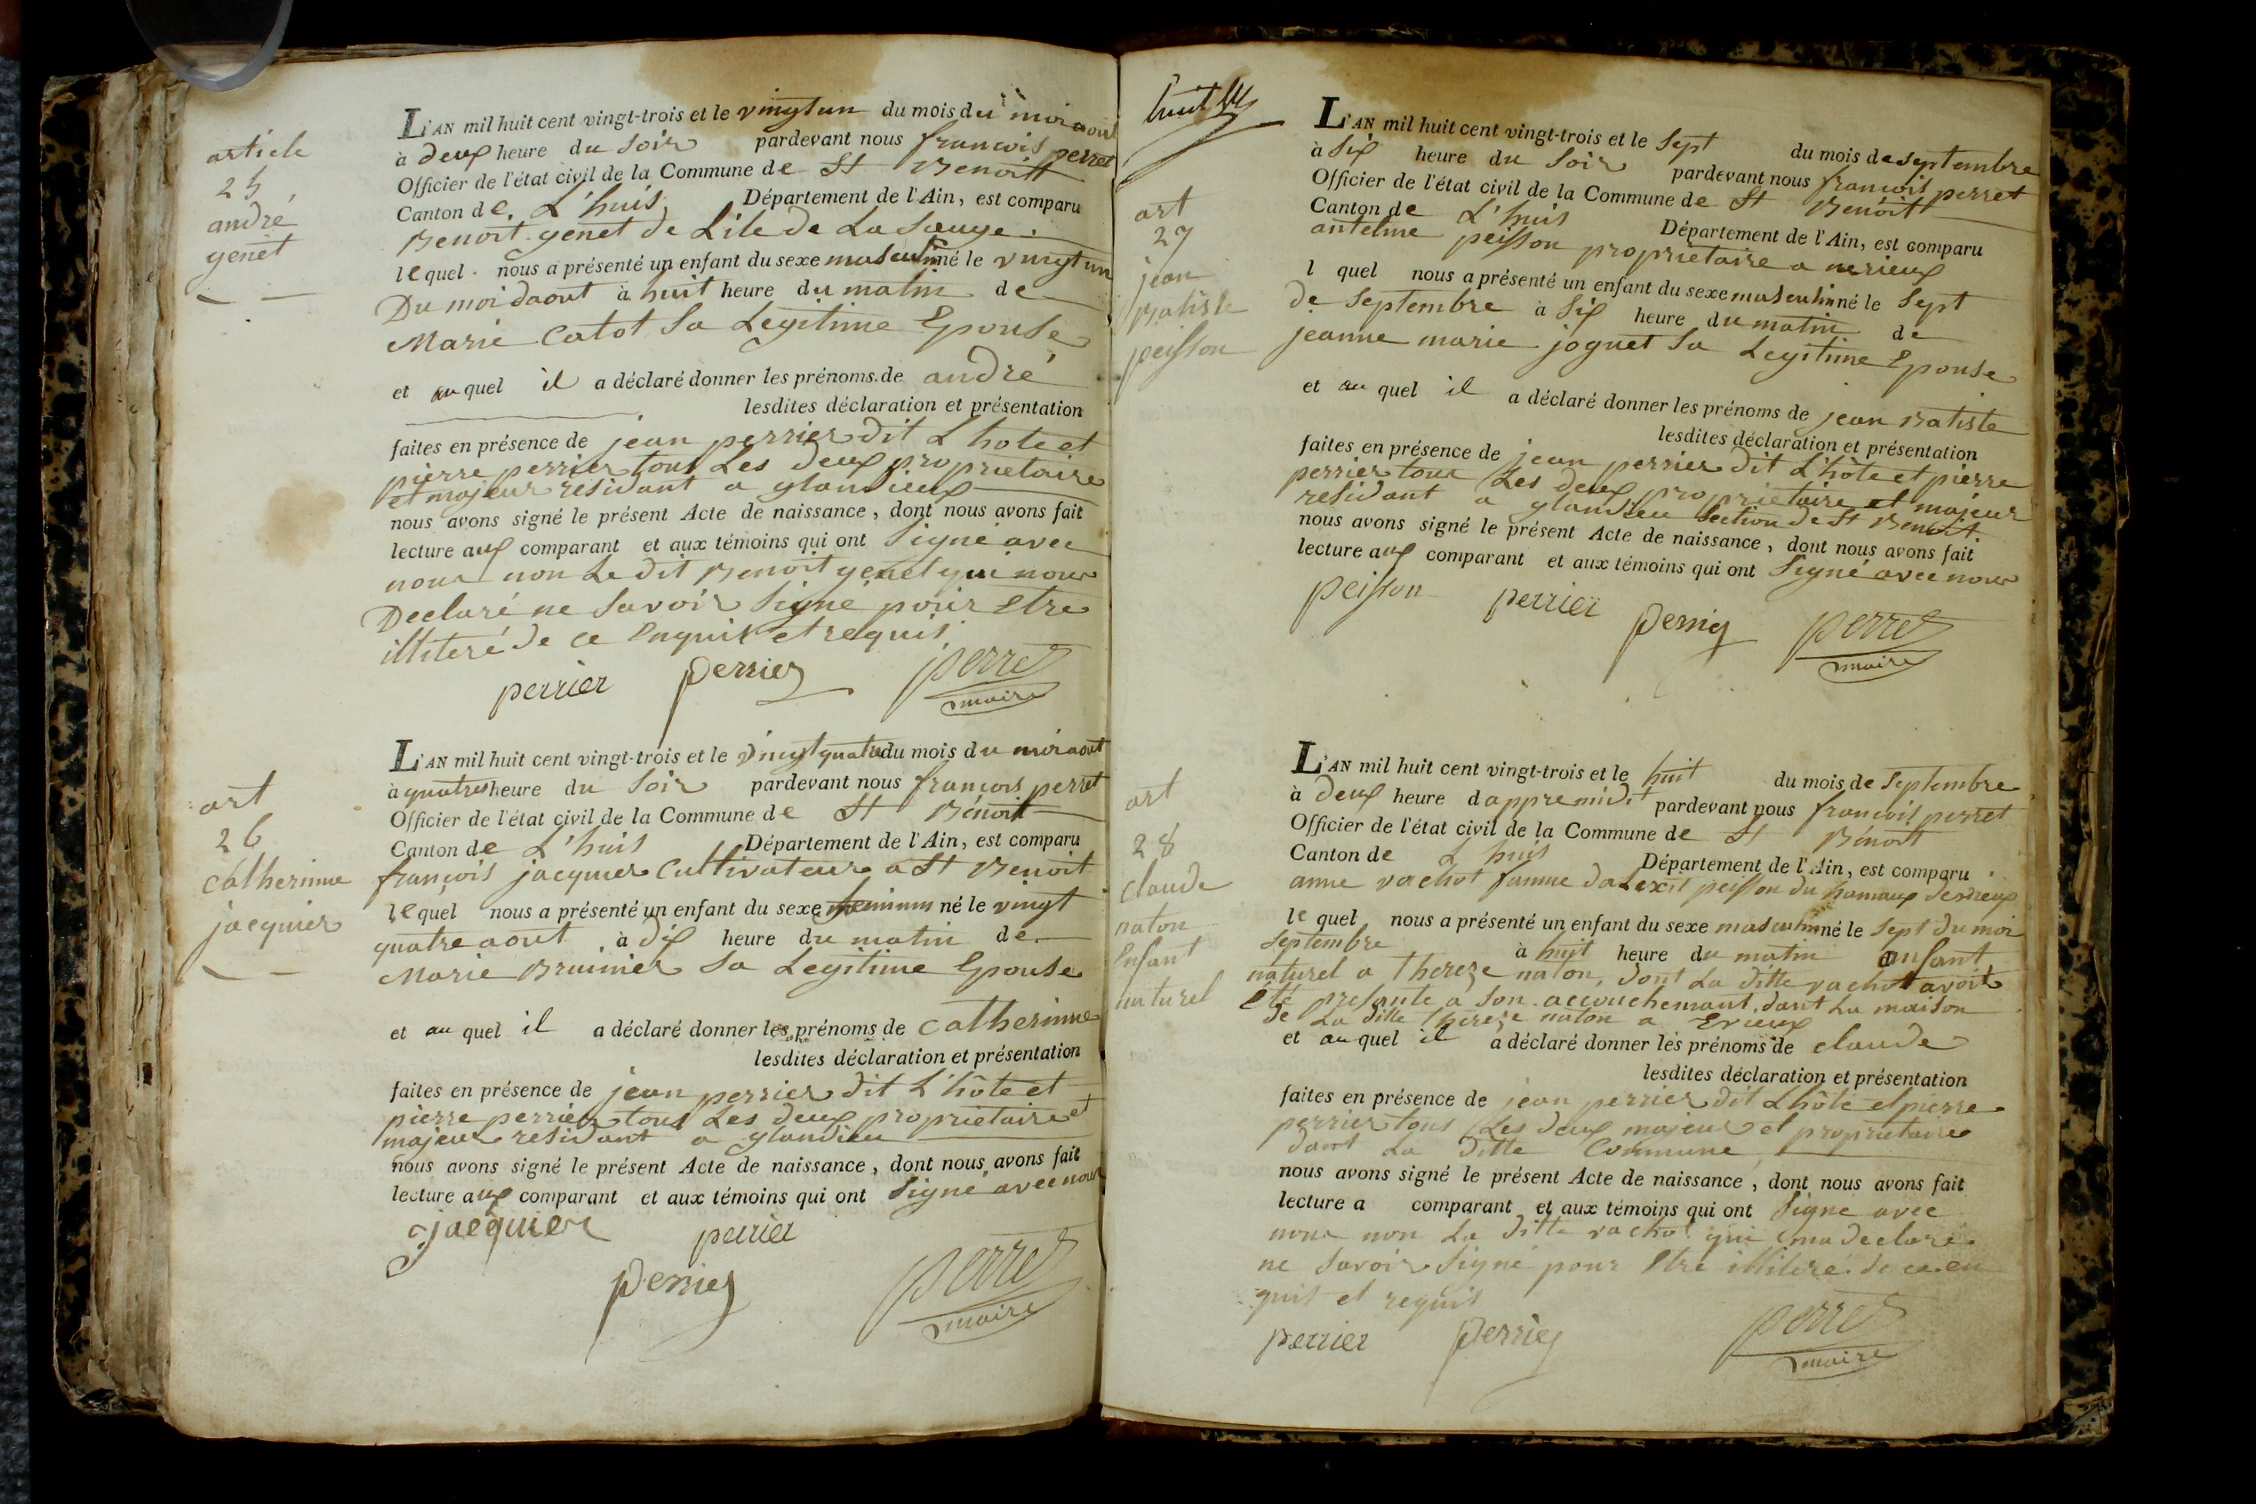 article
25
andré
genet
L'AN mil huit cent vingt-trois et le vingt un du mois du moi daout
à deux heure du soir pardevant nous francois perret
Officier de l'état civil de la Commune de St Benoitt
Canton de L'huis Département de l'Ain, est comparu
Benoit genet de L'ile de La Sauge
lequel nous a présenté un enfant du sexe masculin né le vingt un
Du moi daout à huit heure du matin de
Marie Catot sa Legitime Epouse
et au quel il a déclaré donner les prénoms de andré
lesdites déclaration et présentation
faites en présence de jean perrier dit L'hote et
pierre perrier tous Les deux proprietaire
et majeur residant a glandieux
nous avons signé le présent Acte de naissance, dont nous avons fait
lecture aux comparant et aux témoins qui ont signé avec
nous non Le dit Benoit genet qui nous
Declaré ne savoir signé pour Etre
illiteré de ce Enquis et requis
perrier perrier perret
maire
art
26
catherinne
jacquier
L'AN mil huit cent vingt-trois et le vingt quatre du mois du moi aout
à quatres heure du soir pardevant nous françois perret
Officier de l'état civil de la Commune de St Bénoit
Canton de L'huis Département de l'Ain, est comparu
françois jacquier Cultivateur a St Benoit
lequel nous a présenté un enfant du sexe feminin né le vingt
quatre aout à dix heure du matin de
Marie Brunier sa Legitime Epouse
et au quel il a déclaré donner les prénoms de Catherinne
lesdites déclaration et présentation
faites en présence de jean perrier dit L'hôte et
pierre perrier tous Les deux proprietaire et
majeur residant a glandieu
nous avons signé le présent Acte de naissance, dont nous avons fait
lecture aux comparant et aux témoins qui ont signé avec nous
jacquier perrier
perrier perret
maire
huit
art
27
jean
Batiste
peisson
L'AN mil huit cent vingt-trois et le sept du mois de septembre
à six heure du soir pardevant nous francois perret
Officier de l'état civil de la Commune de St Benoit
Canton de L'huis Département de l'Ain, est comparu
antelme peisson proprietaire a
l quel nous a présenté un enfant du sexe masculin né le sept
de septembre à six heure du matin de
jeanne marie joguet sa Legitime Epouse
et au quel il a déclaré donner les prénoms de jean Batiste
lesdites déclaration et présentation
faites en présence de jean perrier dit L'hôte et pierre
perrier tous Les deux proprietaire et majeur
residant a glandieu section de St Benoit
nous avons signé le présent Acte de naissance, dont nous avons fait
lecture aux comparant et aux témoins qui ont signé avec nous
peisson perrier perrier perret
maire
art
28
claude
naton
Enfant
naturel
L'AN mil huit cent vingt-trois et le huit du mois de septembre
à deux heure dappremidit pardevant nous francois perret
Officier de l'état civil de la Commune de St Bénoitt
Canton de L huis Département de l'Ain, est comparu
anne vachot famme dalexit peisson du hamaux
le quel nous a présenté un enfant du sexe masculin né le sept du moi
septembre à huit heure du matin enfant
naturel a thereze naton, dont La ditte vachot avoit
Eté presante à son accouchemant dant La maison
de La ditte thereze naton a Erieux
et au quel il a déclaré donner les prénoms de claude
lesdites déclaration et présentation
faites en présence de jean perrier dit Lhôte et pierre
perrier tous Les deux majeur et proprietaire
dant La ditte Commune
nous avons signé le présent Acte de naissance, dont nous avons fait
lecture a comparant et aux témoins qui ont signe avec
nous non La ditte vachot qui ma declaré
ne savoir signé pour Etre illiteré de ce en
quit et requit
perrier perrier perret
maire